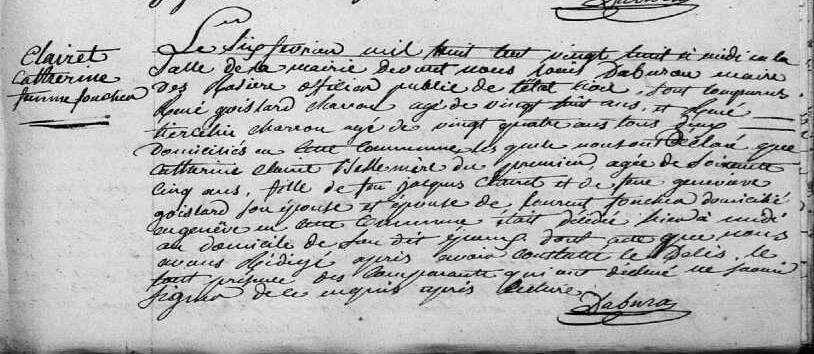 Daburon
Clairet
Catherine
femme foucher
Le six fevrier mil huit cent vingt huit à midi en la
Salle de la mairie devant nous Louis Daburon maire
Des Rosiers officier public de l'état civil, sont comparus
René goislard charron agé de vingt huit ans, et René
hercelin charron agé de vingt quatre ans tous deux
domicilies en cette Commune les quels nous ont Déclaré que
Catherine Clairet Bellemère du premier agée de soixante
cinq ans, fille de feu Jacques Clairet et de feue genevieve
goislard son épouse et épouse de Laurent foucher domicilié
en cette Commune était décédée hier à midi
au domicile de son dit époux, dont acte que nous
avons Rédigé après avoir constaté le Décès, le
tout présence des Comparants qui ont déclaré ne savoir
signer de ce enquis après lecture
Daburon